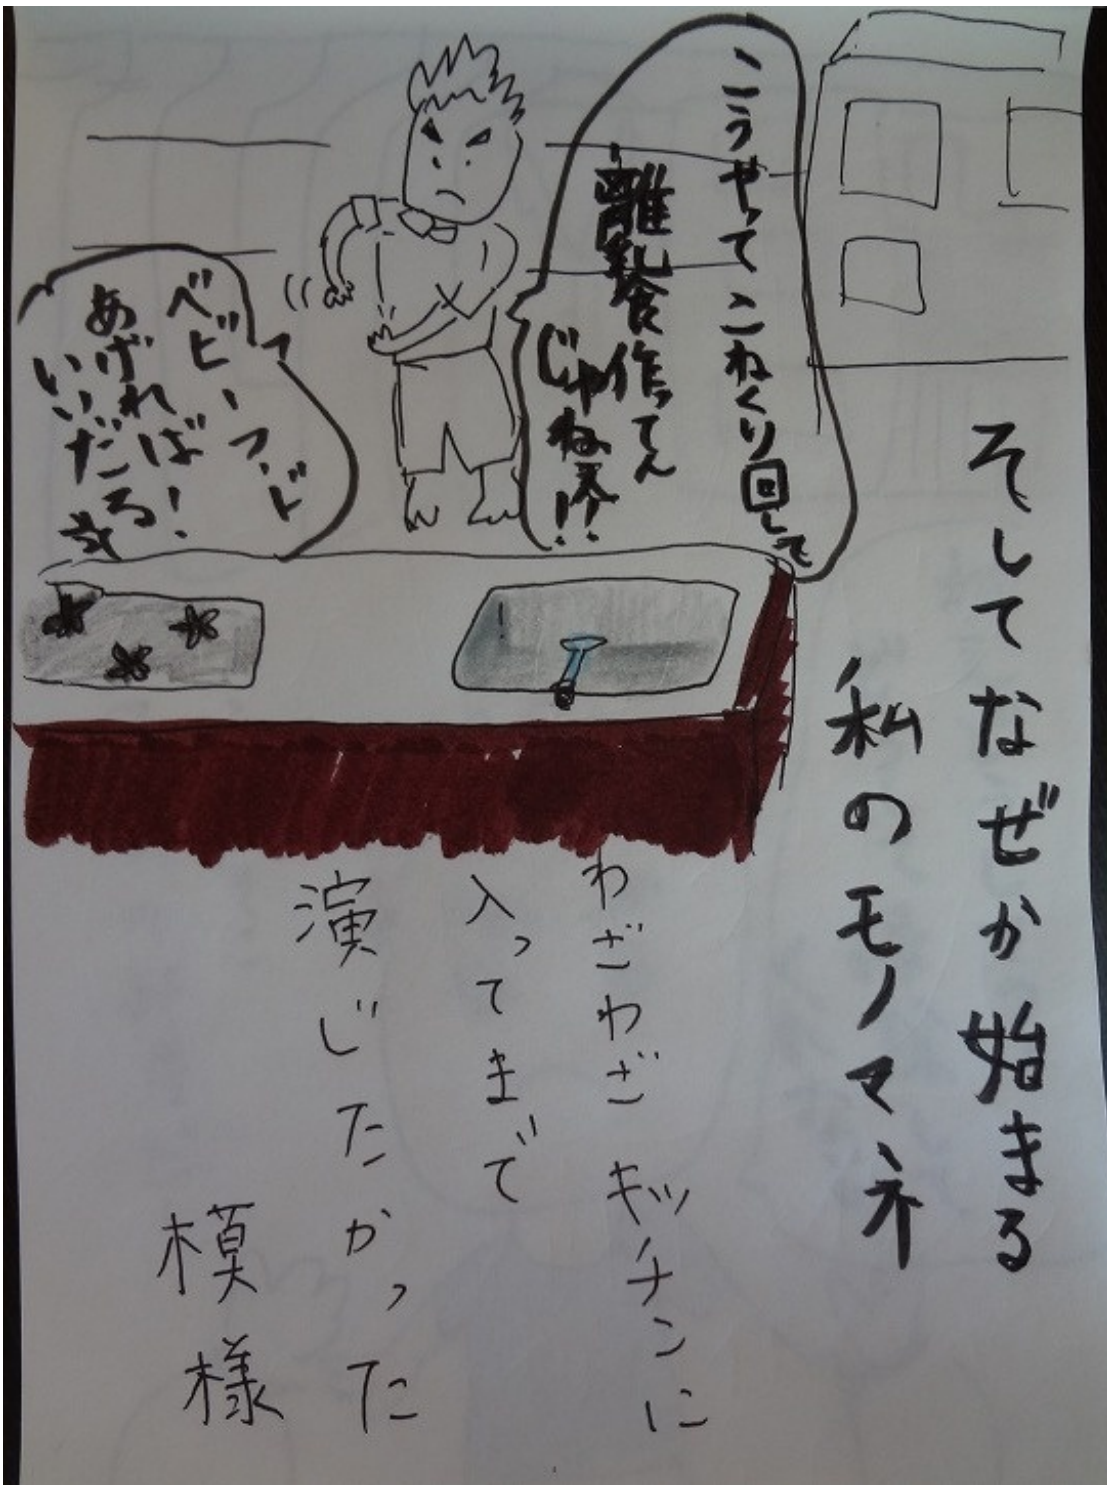 そしてなぜか始まる
私のモノマネ
こうやってこねくり回して
離乳食作ってん
じゃねぇ!!
ベビーフード
あげれば!
いいだろ
わざわざキッチンに
入ってまで
演じたかった
模様